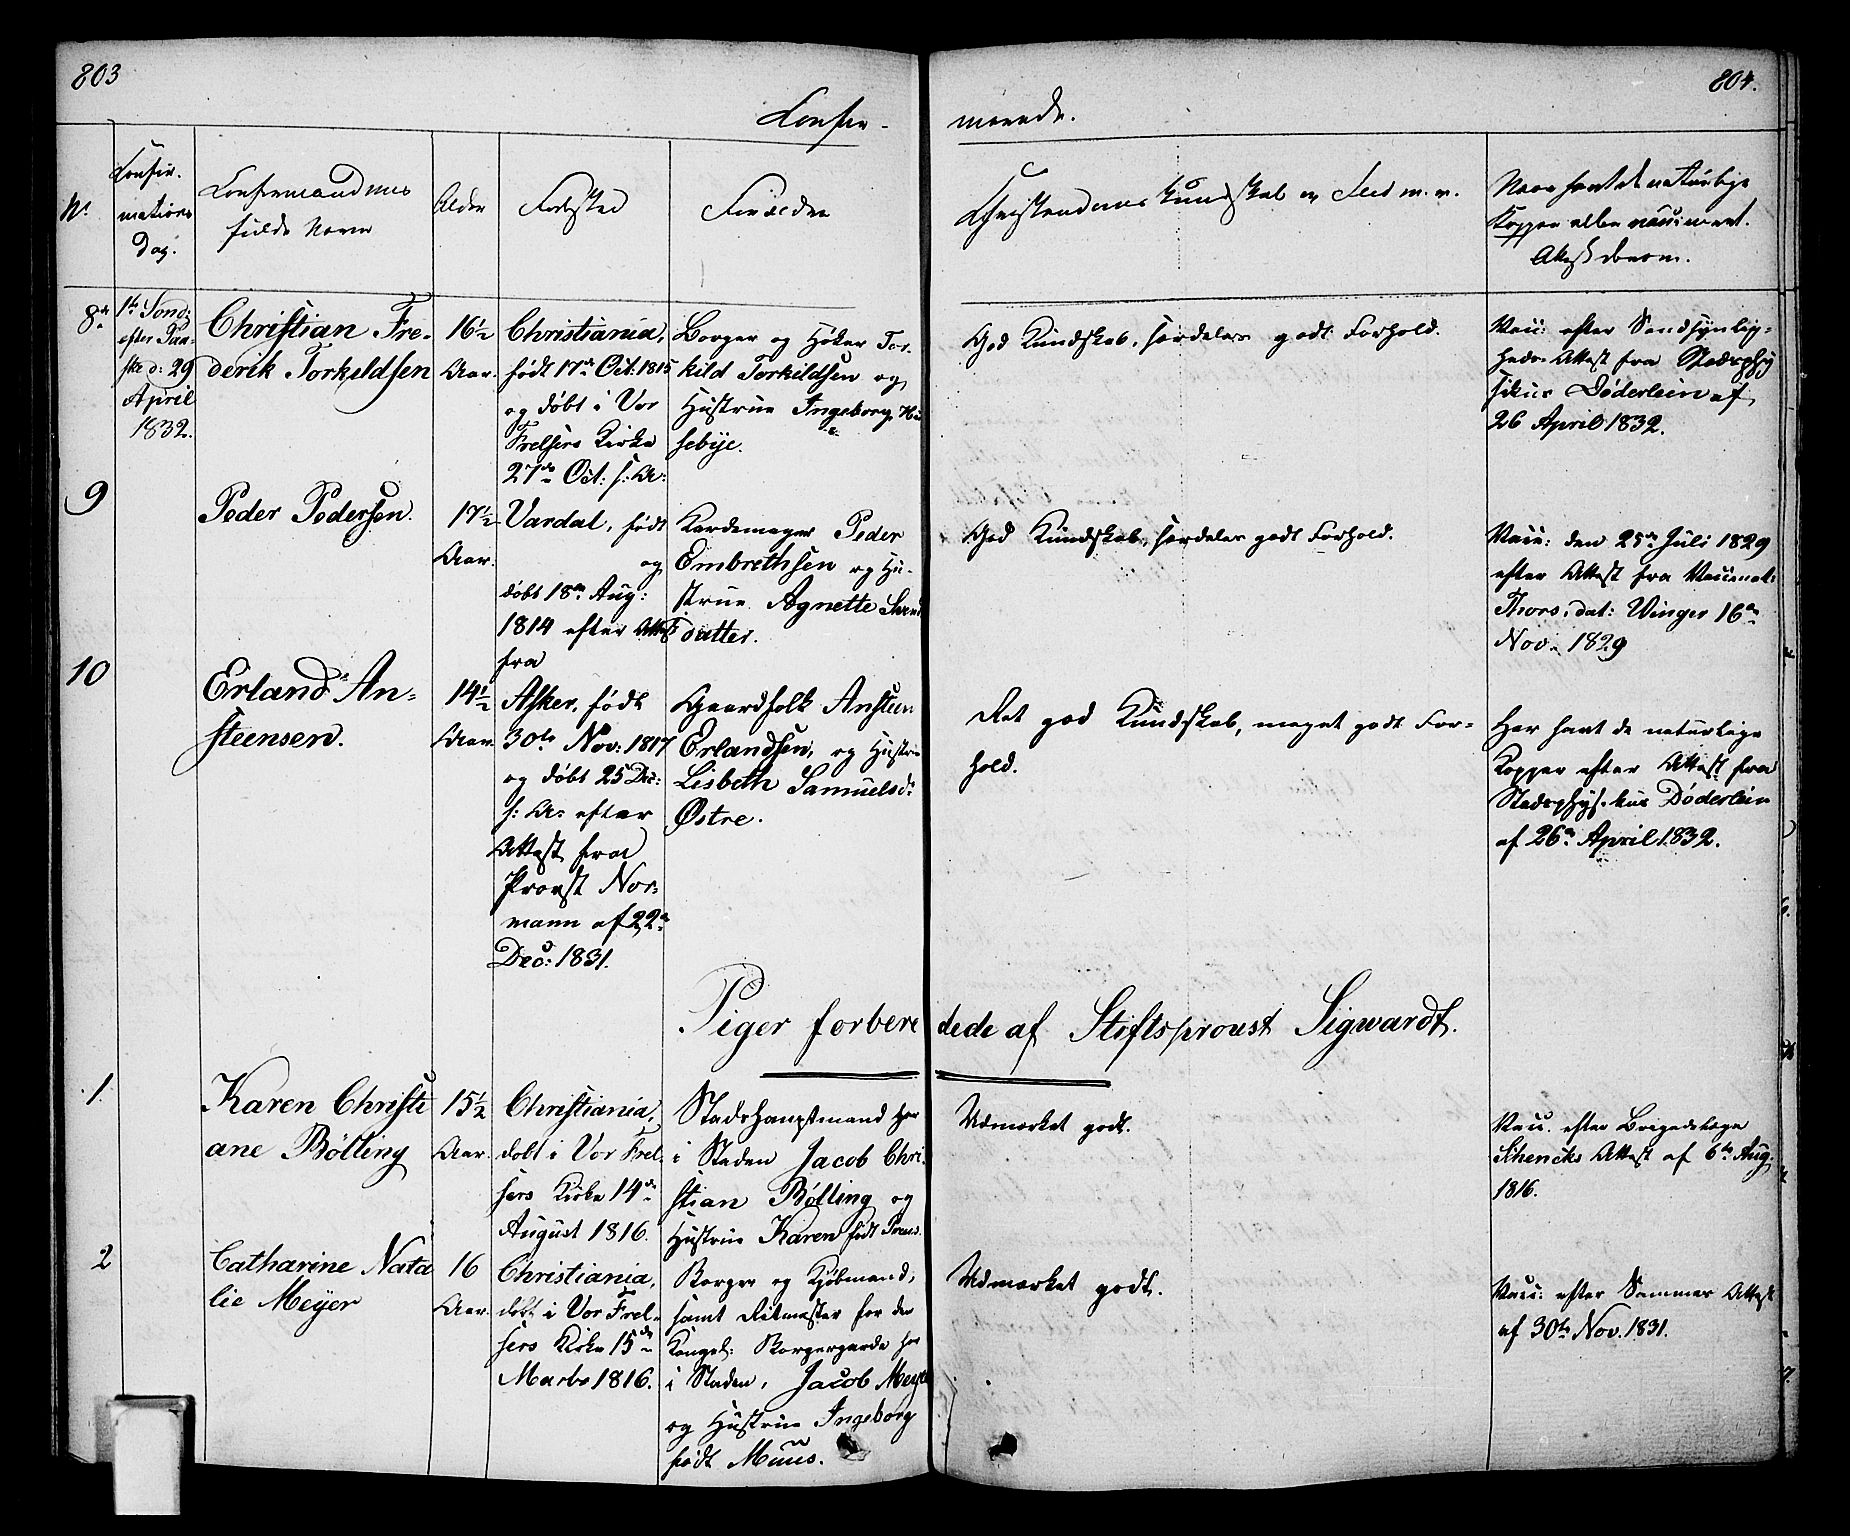 803
804.
Confir-
merede.
No.
Confir-
mations
Dag.
Confirmandernes
fulde Navn
Alder
Fødested
Forældre
Christendoms Kundskab og Flid m. v.
Naar havt de naturlige
Kopper eller vaccineret.
Attest derom.
8de
1ste Sønd:
efter Paa-
ske d: 29
April
1832.
Christian Fre-
derik Torkildsen
16½
Aar.
Christiania,
født 17de Oct: 1815
og døbt i Vor
Frelsers Kirke
27de Oct: s: A:
Borger og Høker Tor-
kild Torkildsen og
Hustrue Ingeborg Hu-
sebye.
God Kundskab, særdeles godt Forhold.
Vacc: efter Sandsynlig-
heds Attest fra Stadsphy
sikus Døderlein af
26 April 1832.
9
Peder Pedersen.
17½
Aar.
Vardal, født
og
døbt 18de Aug:
1814 efter Attest
fra
Kardemager Peder
Embrethsen og Hu-
strue Agnette
datter.
God Kundskab, særdeles godt Forhold.
Vacc: den 25de Juli 1829
efter Attest fra Vaccinat:
Thors, dat: Vinger 16de
Nov. 1829
10
Erland An-
steensen.
14½
Aar.
Asker, født
30te Nov: 1817
og døbt 25 Dec:
s: A: efter
Attest fra
Provst Nor-
mann af 22de
Dec: 1831.
Gaardfolk Ansteen
Erlandsen, og Hustrue
Lisbeth Samuelsd:
Østre.
Ret god Kundskab, meget godt For-
hold.
Har havt de naturlige
Kopper efter Attest fra
Stadsphysikus Døderlein
af 26de April 1832.
Piger forberedede af Stiftsproust Sigwardt.
1.
Karen Christi
ane Bølling
15½
Aar.
Christiania,
døbt i Vor Frel-
sers Kirke 14de
August 1816.
Stadshauptmand her
i Staden Jacob Chri-
stian Bølling og
Hustrue Karen født Preus.
Udmærket godt.
Vacc. efter Brigadelæge
Schencks Attest af 6te Aug.
1816.
2
Catharine Nata
lie Meyer
16
Aar.
Christiania,
døbt i Vor Frel-
sers Kirke 15de
Marts 1816.
Borger og Kjøbmand,
samt Ritmester for den
Kongel: Borgergarde her
i Staden, Jacob Meyer
og Hustrue Ingeborg
født Muus.
Udmærket godt.
Vacc: efter Sammes Attest
af 30te Nov. 1831.